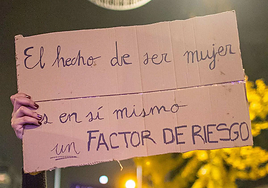 El hecho de ser mujer
es en sí mismo
un FACTOR DE RIESGO